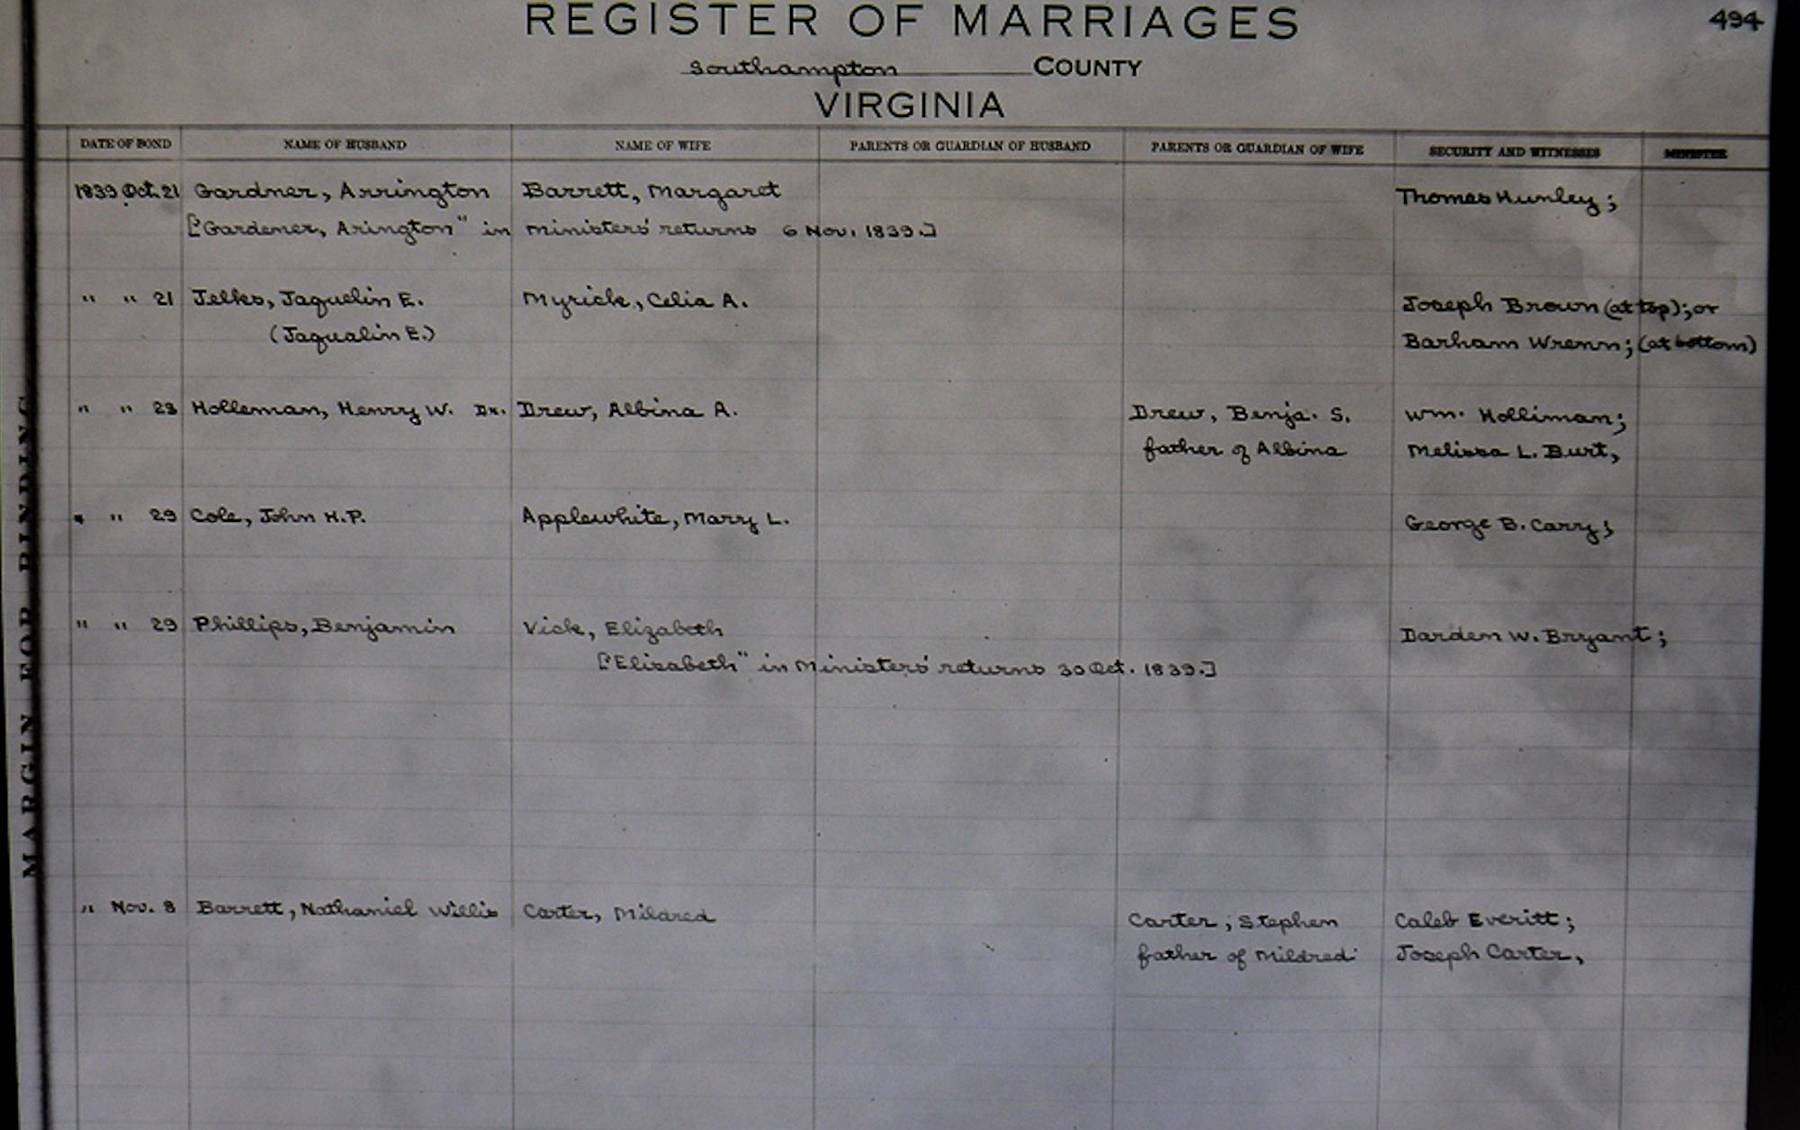 REGISTER OF MARRIAGES 494
Southampton COUNTY
VIRGINIA
DATE OF BOND NAME OF HUSBAND NAME OF WIFE PARENTS OR GUARDIAN OF HUSBAND PARENTS OR GUARDIAN OF WIFE SECURITY AND WITNESSES MINISTER
1839 Oct. 21 Gardner, Arrington Barrett, Margaret Thomas Hunley;
["Gardener, Arington" in ministers' returns 6 Nov. 1839.]
" " 21 Jelks, Jaquelin E. Myrick, Celia A. Joseph Brown (at top); or
(Jaqualin E.) Barham Wrenn; (at bottom)
" " 23 Holleman, Henry W. Dr. Drew, Albina A. Drew, Benja. S. Wm. Holliman;
father of Albina Melissa L. Burt,
" " 29 Cole, John H.P. Applewhite, Mary L. George B. Cary;
" " 29 Phillips, Benjamin Vick, Elizabeth Darden W. Bryant;
["Elisabeth" in Ministers' returns 30 Oct. 1839.]
" Nov. 8 Barrett, Nathaniel Willis Carter, Mildred Carter, Stephen Caleb Everitt;
father of Mildred Joseph Carter,
MARGIN FOR BINDING